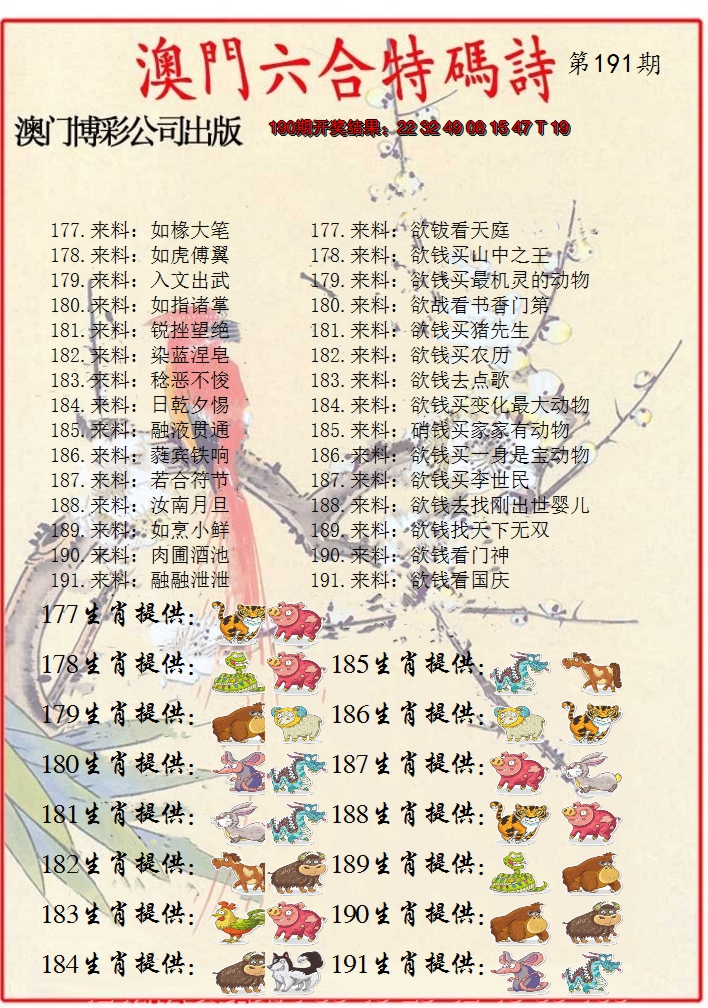 澳門六合特碼詩 第191期
澳门博彩公司出版 190期开奖结果：22 32 49 08 15 47 T 19
177.来料：如椽大笔 177.来料：欲钹看天庭
178.来料：如虎傅翼 178.来料：欲钱买山中之王
179.来料：入文出武 179.来料：欲钱买最机灵的动物
180.来料：如指诸掌 180.来料：欲战看书香门第
181.来料：锐挫望绝 181.来料：欲钱买猪先生
182.来料：染蓝涅皂 182.来料：欲钱买农历
183.来料：稔恶不悛 183.来料：欲钱去点歌
184.来料：日乾夕惕 184.来料：欲钱买变化最大动物
185.来料：融液贯通 185.来料：硝钱买家家有动物
186.来料：蕤宾铁响 186.来料：欲钱买一身是宝动物
187.来料：若合符节 187.来料：欲钱买李世民
188.来料：汝南月旦 188.来料：欲钱去找刚出世婴儿
189.来料：如烹小鲜 189.来料：欲钱找天下无双
190.来料：肉圃酒池 190.来料：欲钱看门神
191.来料：融融泄泄 191.来料：欲钱看国庆
177生肖提供：
178生肖提供： 185生肖提供：
179生肖提供： 186生肖提供：
180生肖提供： 187生肖提供：
181生肖提供： 188生肖提供：
182生肖提供： 189生肖提供：
183生肖提供： 190生肖提供：
184生肖提供： 191生肖提供：